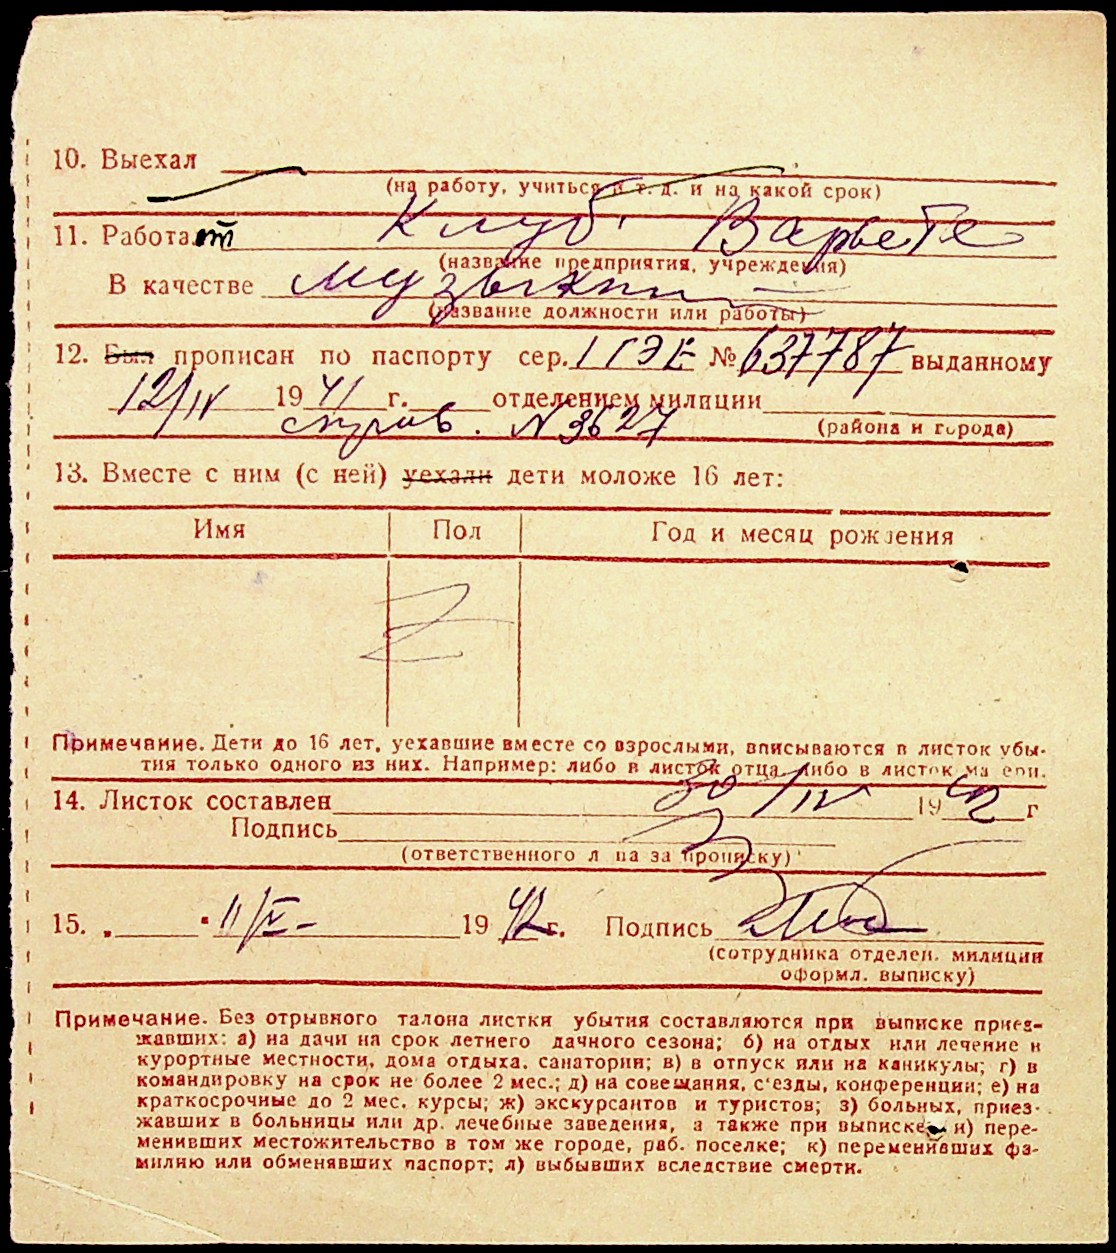 10. Выехал
(на работу, учиться и т. д. и на какой срок)
11. Работает Клуб Варьете
(название предприятия, учреждения)
В качестве музыкант
(название должности или работы)
12. Был прописан по паспорту сер. I ГЭЕ № 637787 выданному
12/IV 1941 г. отделением милиции
справ. N 3627 (района и города)
13. Вместе с ним (с ней) уехали дети моложе 16 лет:
Имя Пол Год и месяц рождения
Z
Примечание. Дети до 16 лет, уехавшие вместе со взрослыми, вписываются в листок убы-
тия только одного из них. Например: либо в листок отца, либо в листок матери.
14. Листок составлен 30/IV 1942 г
Подпись
(ответственного лица за прописку)
15. „ " 11/V- 1942 г. Подпись
(сотрудника отделен. милиции
оформл. выписку)
Примечание. Без отрывного талона листки убытия составляются при выписке приез-
жавших: а) на дачи на срок летнего дачного сезона; б) на отдых или лечение в
курортные местности, дома отдыха, санатории; в) в отпуск или на каникулы; г) в
командировку на срок не более 2 мес.; д) на совещания, с'езды, конференции; е) на
краткосрочные до 2 мес. курсы; ж) экскурсантов и туристов; з) больных, приез-
жавших в больницы или др. лечебные заведения, а также при выписке: и) пере-
менивших местожительство в том же городе, раб. поселке; к) переменивших фа-
милию или обменявших паспорт; л) выбывших вследствие смерти.